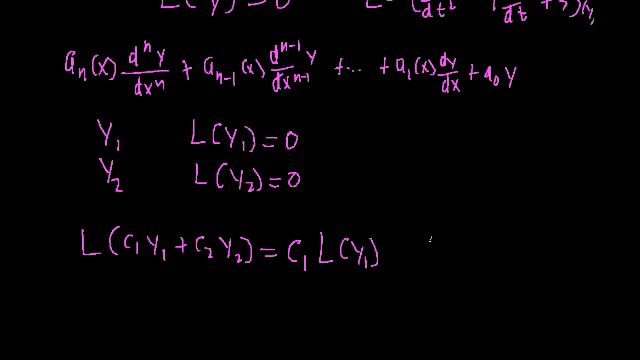 L(y) = 0 L = ( d/dt² d/dt + 3)(y,
aₙ(x) dⁿy/dxⁿ + aₙ₋₁(x) dⁿ⁻¹y/dxⁿ⁻¹ + ... + a₁(x) dy/dx + a₀ y
y₁ L(y₁) = 0
y₂ L(y₂) = 0
L(c₁y₁ + c₂y₂) = c₁ L(y₁)